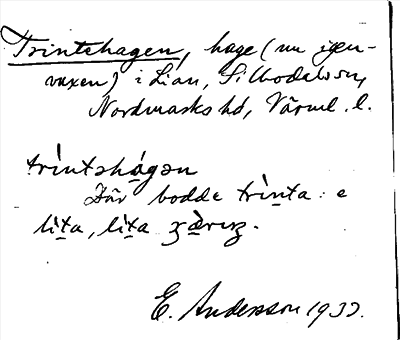 Trintshagen, hage (nu igen-
vuxen) i Lian, Silbodals sn,
Nordmarks hd, Värml. l.
trìntshágən
Där bodde trìnta: e
lìta, lìta
E. Andersson 1932.